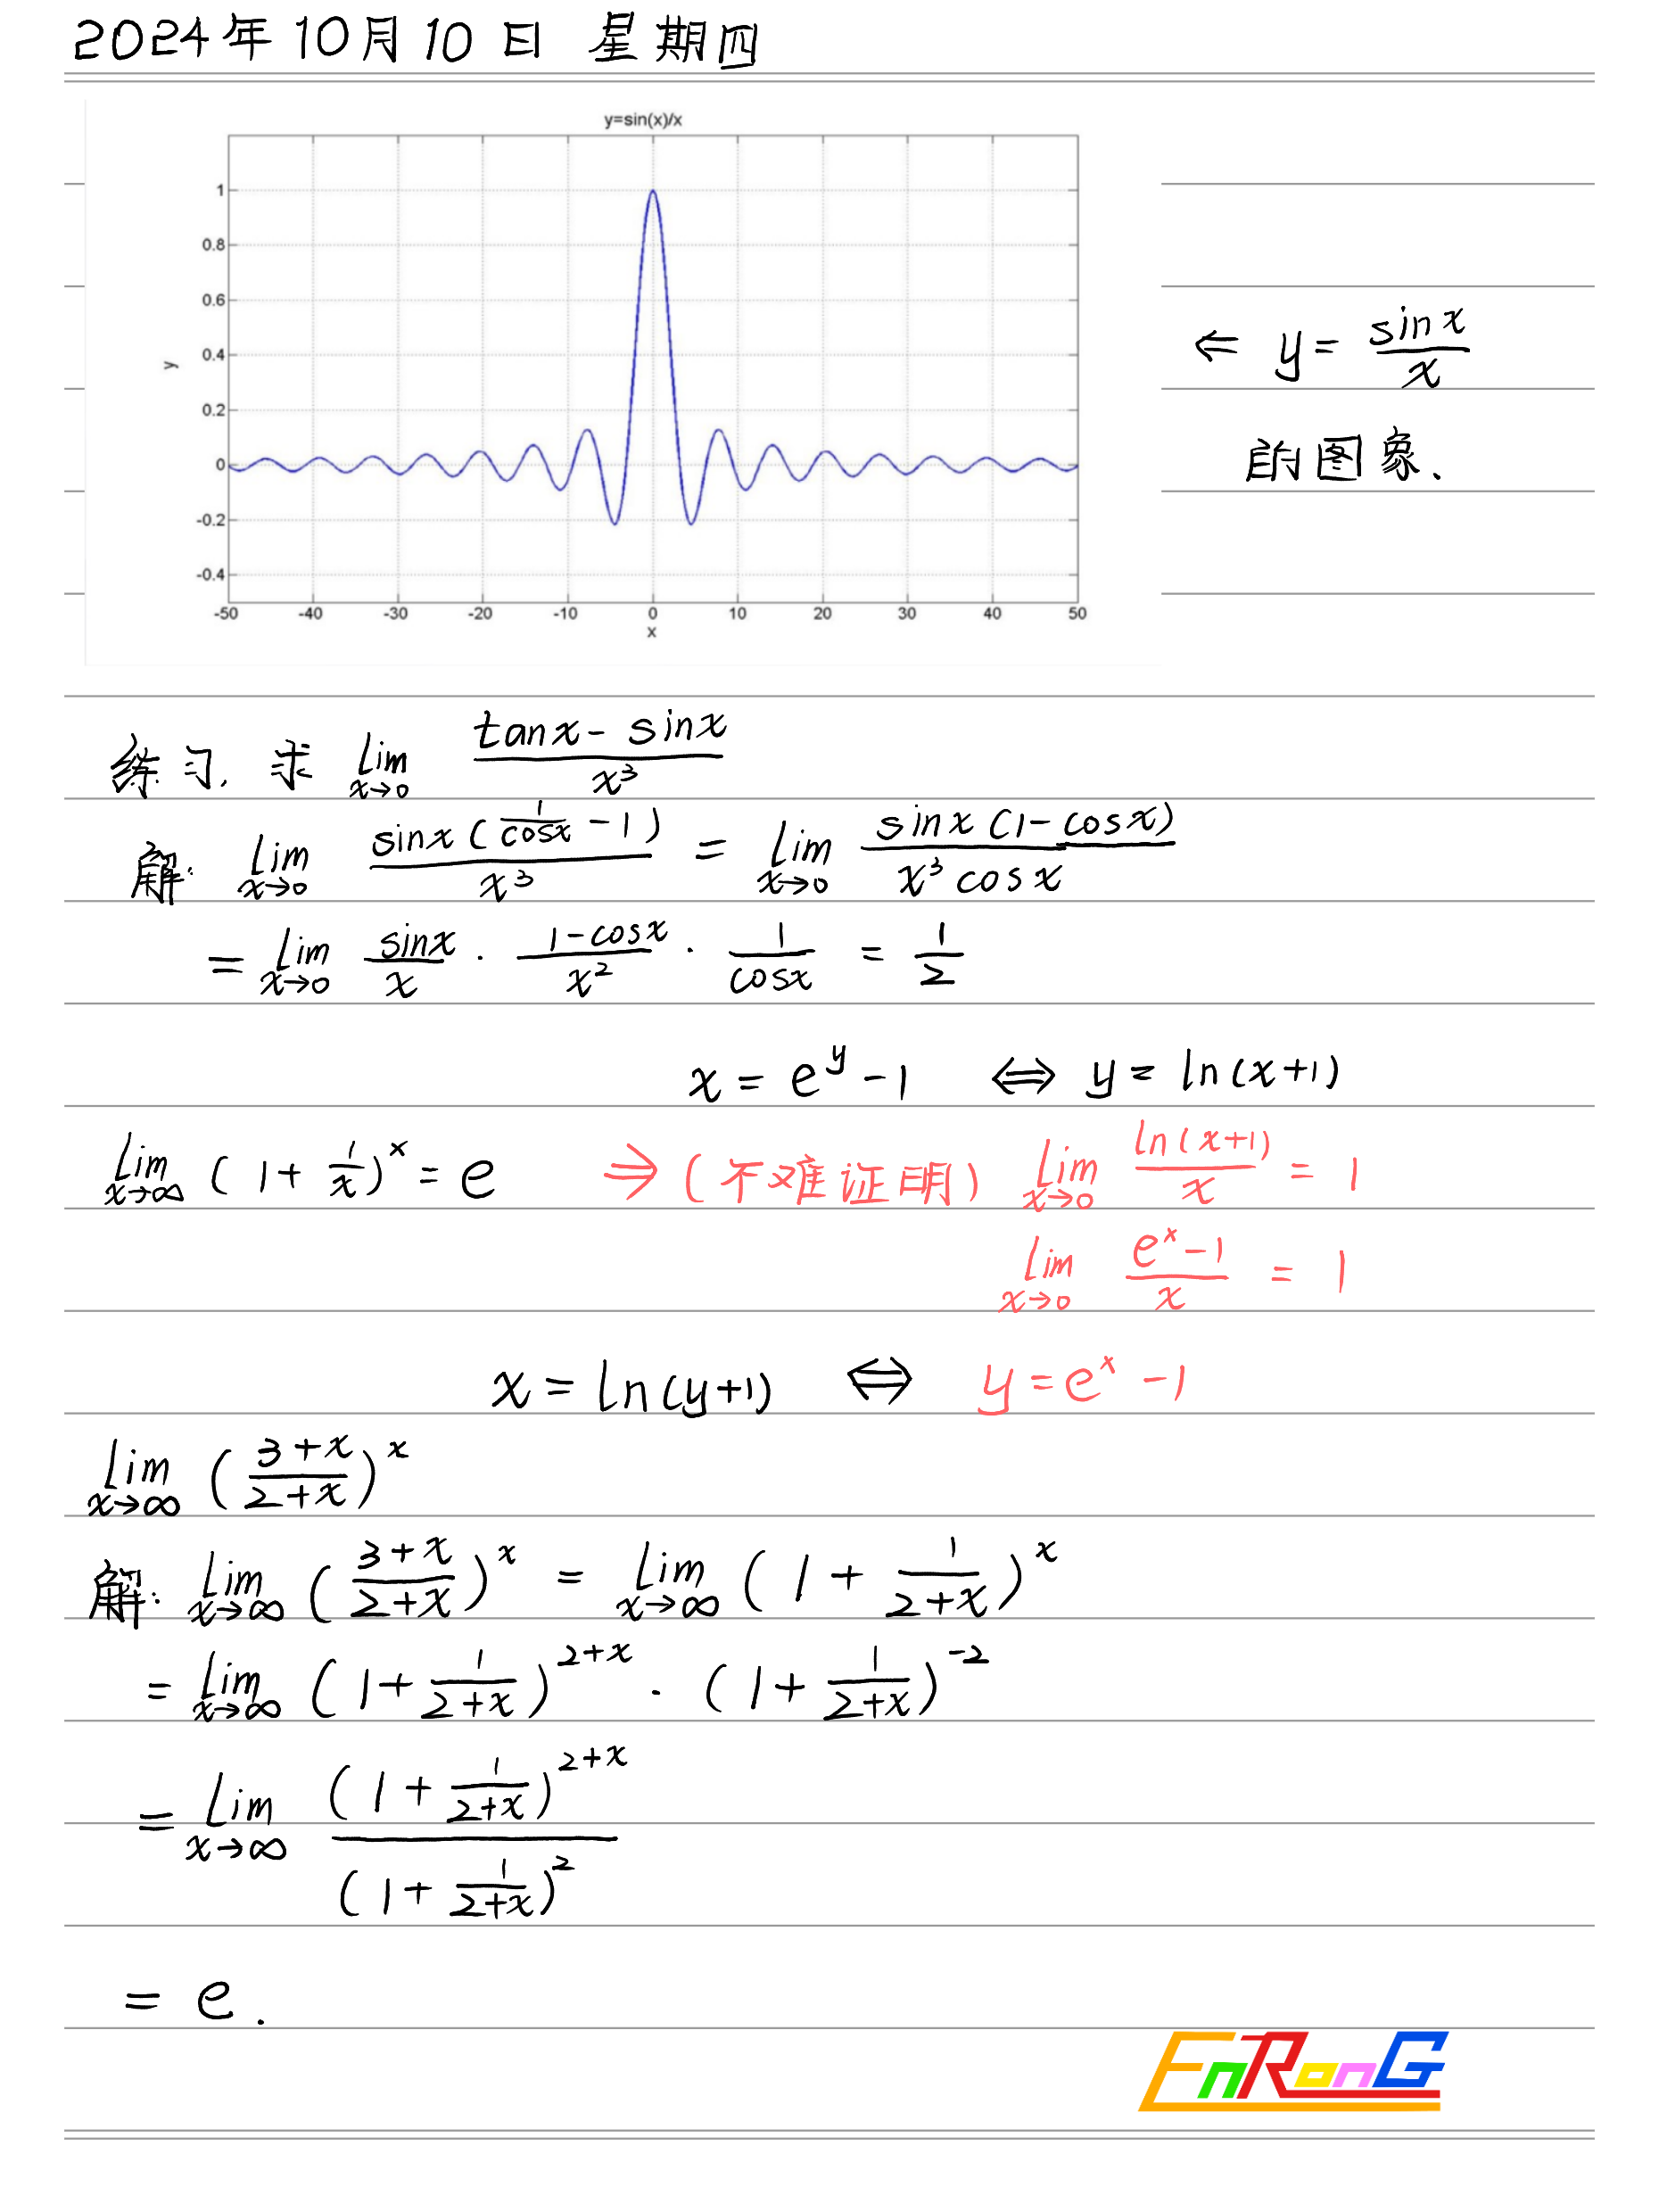 2024年10月10日 星期四
y=sin(x)/x
1
0.8
0.6
0.4
0.2
0
-0.2
-0.4
y
-50 -40 -30 -20 -10 0 10 20 30 40 50
x
⇐ y = sinx/x
的图象.
练习. 求 lim x→0 (tanx - sinx)/x³
解: lim x→0 sinx(1/cosx - 1)/x³ = lim x→0 sinx(1-cosx)/(x³cosx)
= lim x→0 sinx/x · (1-cosx)/x² · 1/cosx = 1/2
x = e^y - 1 ⇔ y = ln(x+1)
lim x→∞ (1 + 1/x)^x = e ⇒ (不难证明) lim x→0 ln(x+1)/x = 1
lim x→0 (e^x - 1)/x = 1
x = ln(y+1) ⇔ y = e^x - 1
lim x→∞ ((3+x)/(2+x))^x
解: lim x→∞ ((3+x)/(2+x))^x = lim x→∞ (1 + 1/(2+x))^x
= lim x→∞ (1 + 1/(2+x))^(2+x) · (1 + 1/(2+x))^-2
= lim x→∞ (1 + 1/(2+x))^(2+x) / (1 + 1/(2+x))^2
= e.
EnRonG